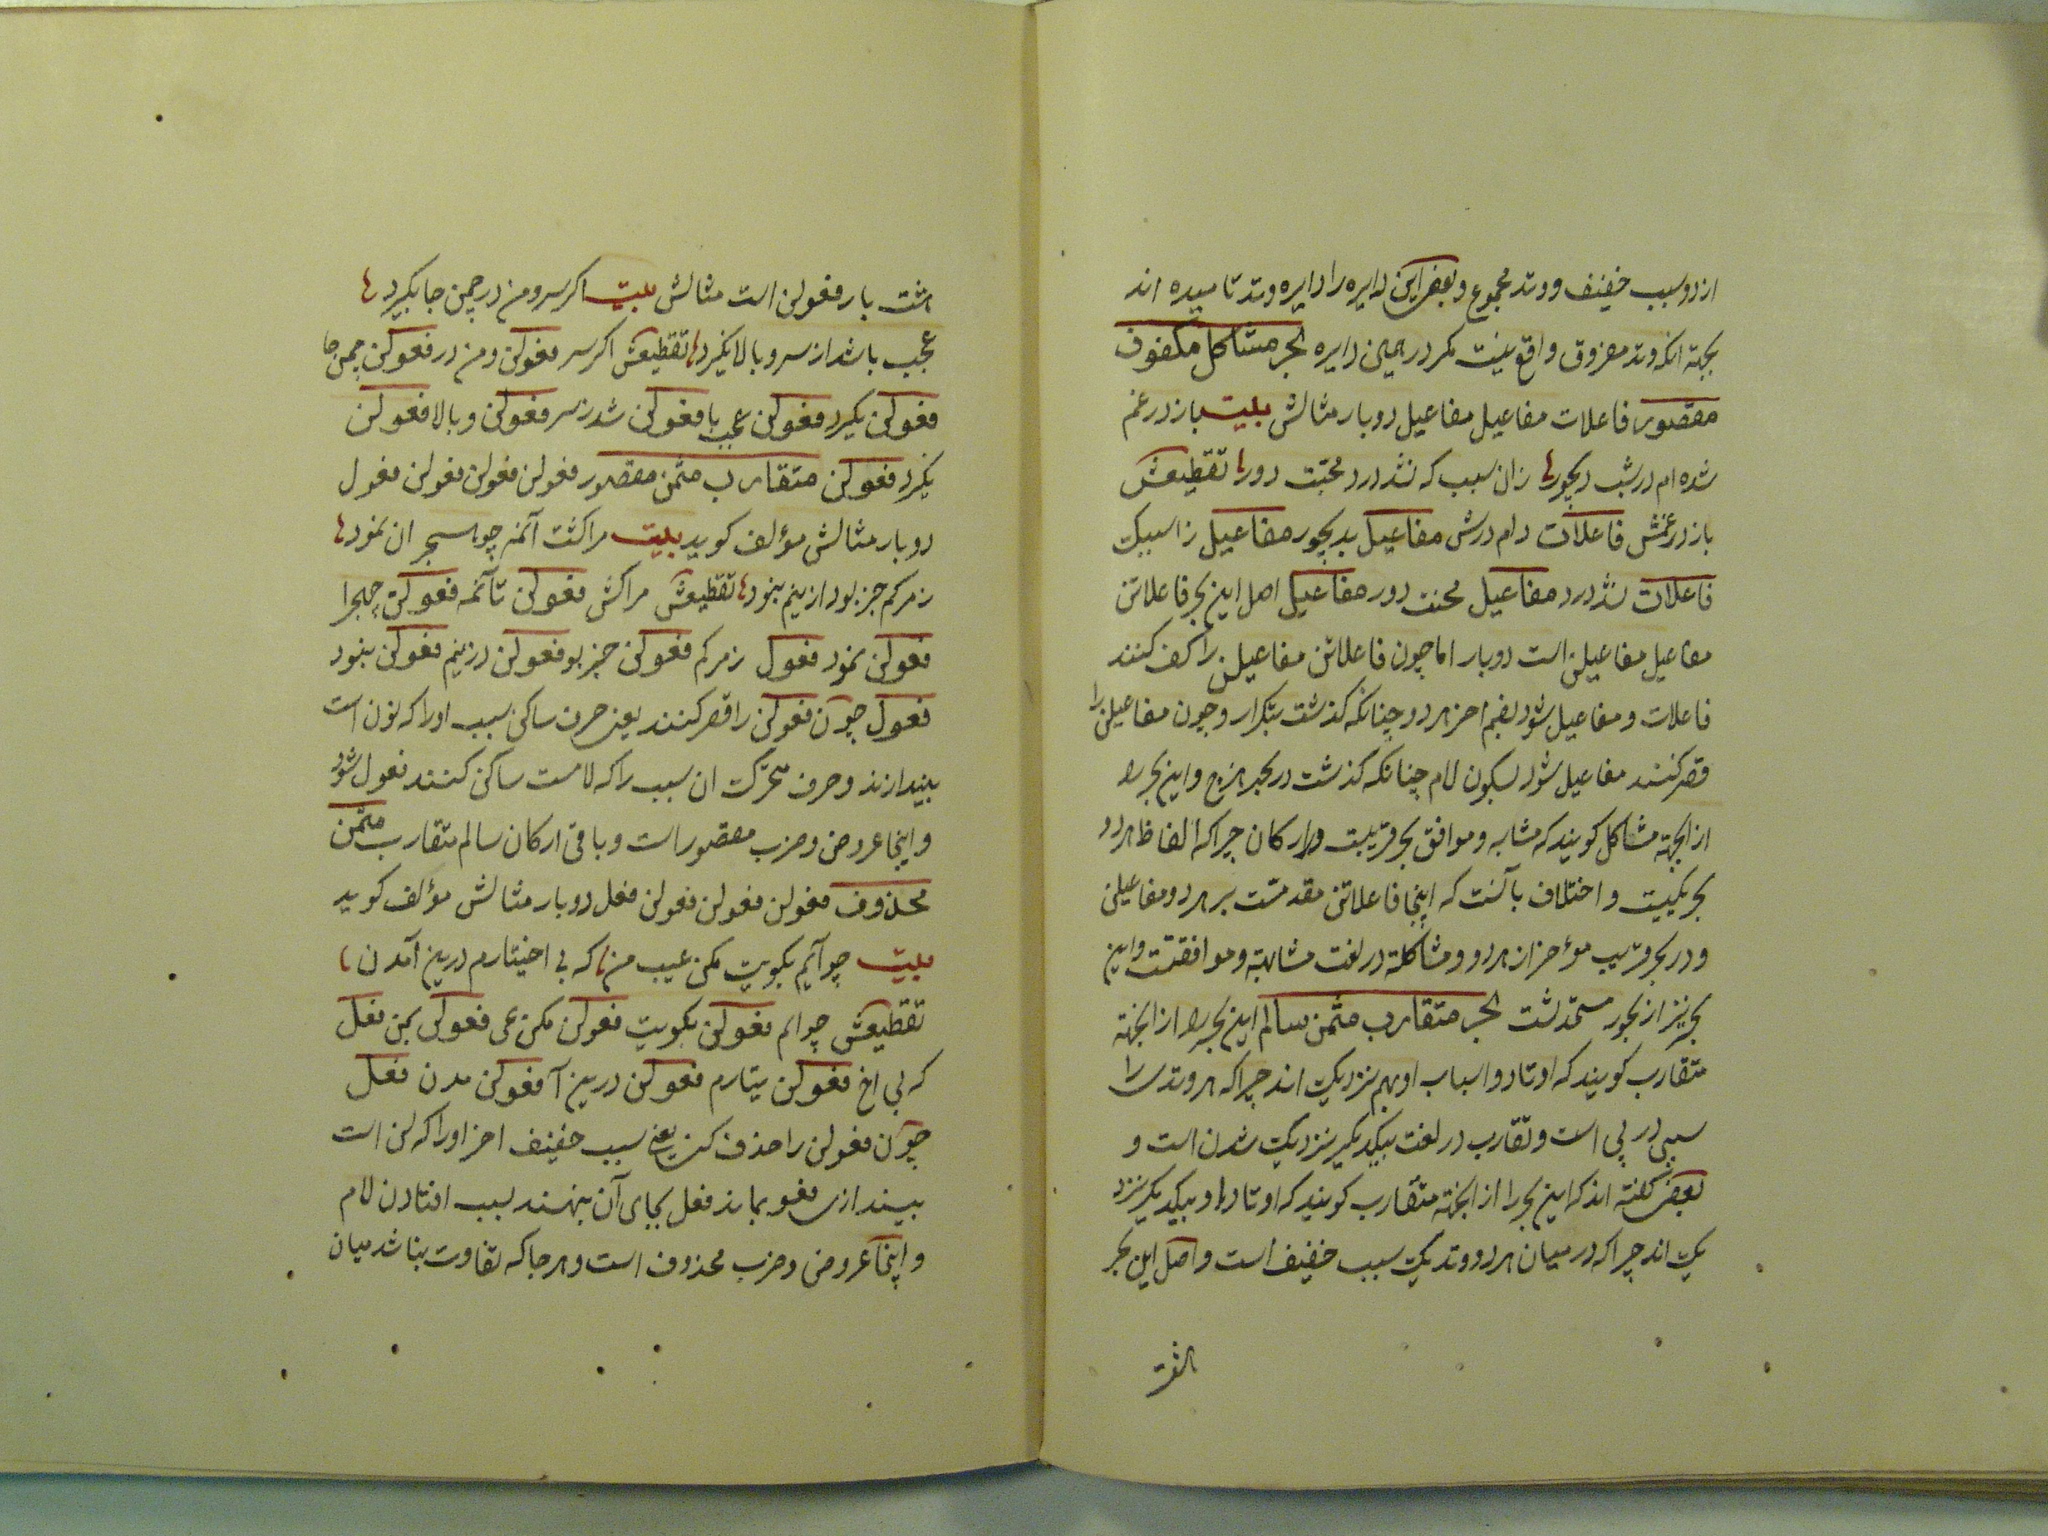 از دو سبب خفیف و وتد مجموع و بعض این دایره را دایره وتد نامیده اند
بجهة انکه وتد مفروق واقع نیست مکر در همین دایره بحر مشاکل مکفوف
مقصور فاعلات مفاعیل مفاعیل دو بار مثالش بیت باز در غم
شده ام در شب دیجور زان سبب که نشد درد محبت دور تقطیعش
باز در غمش فاعلات دام درش مفاعیل بدیجور مفاعیل زا سببک
فاعلات نشد درد مفاعیل محبت دور مفاعیل اصل این بحر فاعلاتن
مفاعیل مفاعیلن است دو بار اما چون فاعلاتن مفاعیلن را کف کنند
فاعلات و مفاعیل شود بضم اخر هر دو چنانکه کذشت بتکرار و چون مفاعیلن را
قصر کنند مفاعیل شود بسکون لام چنانکه کذشت در بحر هزج و این بحر را
از انجهة مشاکل کویند که مشابه و موافق بحر قریبت در ارکان چرا که الفاظ هر دو
بحر یکیت و اختلاف بآنست که اینجا فاعلاتن مقدمست بر هر دو مفاعیلن
و در بحر قریب مؤخر از هر دو و مشاکلة در لغت مشابهة و موافقتت و این
بحر نیز از بحور مستحدثست بحر متقارب مثمن سالم این بحر را از انجهة
متقارب کویند که اوتاد و اسباب او بهم نزدیک اند چرا که هر وتد را
سببی در پی است و تقارب در لغت بیکدیکر نزدیک شدن است و
بعض کفته اند که این بحر را از انجهة متقارب کویند که اوتاد او بیکدیکر نزد
یک اند چرا که در میان هر دو وتد یک سبب خفیف است و اصل این بحر
اشت بار فعولن است مثالش بیت اکر سرو من در چمن جا بکیرد
عجب باشد از سرو بالا نکیرد تقطیعش اکر سر فعولن و من در فعولن چمن جا
فعولن بکیرد فعولن عجب با فعولن شد ز سر فعولن و بالا فعولن
بکیرد فعولن متقارب مثمن مقصور فعولن فعولن فعولن فعول
دو بار مثالش مؤلف کوید بیت مرا کشت آنمه چو هجران نمود
ز مرکم جز بود از نیم بنود تقطیعش مرا کش فعولن تآنمه فعولن چهجرا
فعولن نمود فعول ز مرکم فعولن جز بو فعولن در نیم فعولن بنود
فعول چون فعولن را قصر کنند یعنی حرف ساکن سبب او را که نون است
بیندازند و حرف متحرکت ان سبب را که لامست ساکن کنند فعول شود
و اینجا عروض و ضرب مقصور است و باقی ارکان سالم متقارب مثمن
محذوف فعولن فعولن فعولن فعل دو بار مثالش مؤلف کوید
بیت چو آیم بکویت مکن عیب من که بی اختیارم درین آمدن
تقطیعش چو ایم فعولن بکویت فعولن مکن عی فعولن بمن فعل
که بی اخ فعولن یتارم فعولن درین آ فعولن مدن فعل
چون فعولن را حذف کنند یعنی سبب خفیف اخر او را که لن است
بیندازی فعو بماند فعل بجای آن بنهند بسبب افتادن لام
و اینجا عروض و ضرب محذوف است و هر جا که تفاوت بناشد میان